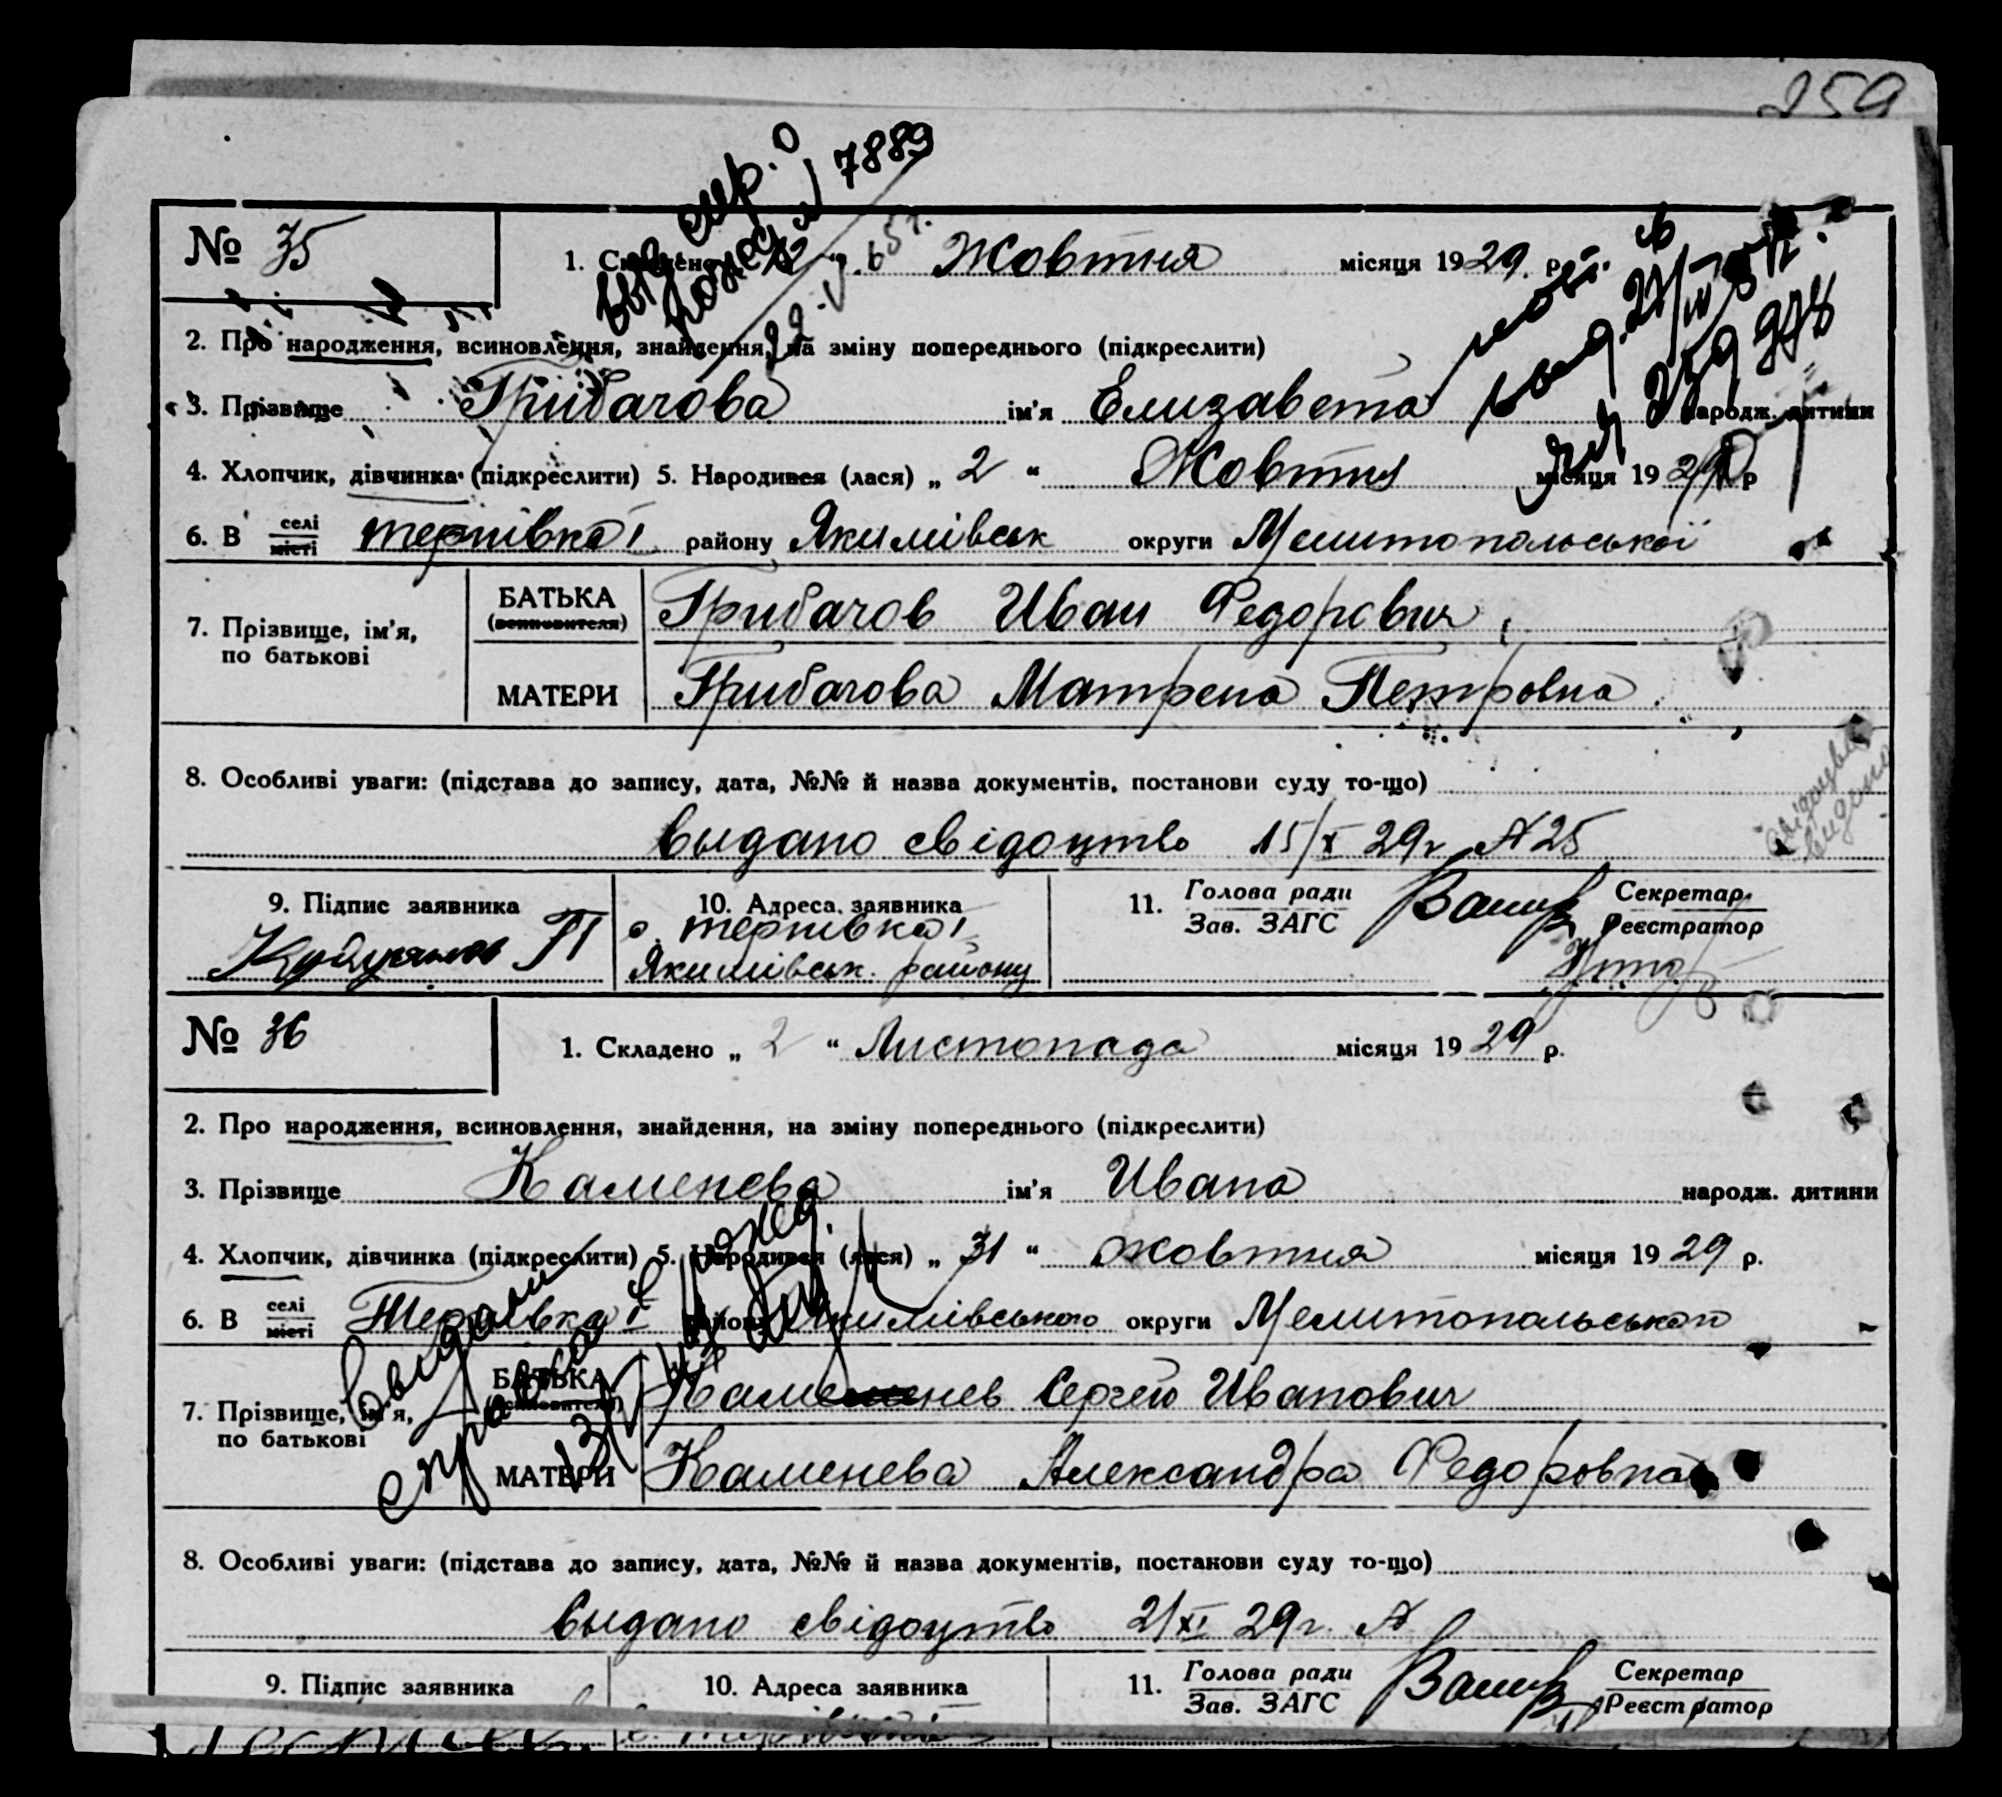 259
7889
№ 35
1. Складено „ " Жовтня місяця 1929. р.
2. Про народження, всиновлення, знайдення, на зміну попереднього (підкреслити)
3. Прізвище Грибачова ім'я Елизавета народж. дитини
4. Хлопчик, дівчинка (підкреслити) 5. Народився (лася) „ 2 " Жовтня місяця 1929 р
6. В селі місті терпівка I району Якимівськ округи Мелитопольської
7. Прізвище, ім'я, по батькові БАТЬКА (всиновителя) Грибачов Иван Федорович
МАТЕРИ Грибачова Матрена Петровна
8. Особливі уваги: (підстава до запису, дата, №№ й назва документів, постанови суду то-що)
свідоцтво видано
выдано свідоцтво 15/X 29г. № 25
9. Підпис заявника 10. Адреса заявника 11. Голова ради Зав. ЗАГС Секретар Реєстратор
с. терпівка I
Якимівськ. району
№ 36
1. Складено „ 2 " Листопада місяця 1929 р.
2. Про народження, всиновлення, знайдення, на зміну попереднього (підкреслити)
3. Прізвище Каменева ім'я Ивана народж. дитини
4. Хлопчик, дівчинка (підкреслити) 5. Народився (лася) „ 31 " жовтня місяця 1929 р.
6. В селі місті Терпівка I району Якимівського округи Мелитопольського
выдана справка
7. Прізвище, ім'я, по батькові БАТЬКА (всиновителя) Каменев Сергей Иванович
МАТЕРИ Каменева Александра Федоровна
8. Особливі уваги: (підстава до запису, дата, №№ й назва документів, постанови суду то-що)
выдано свідоцтво 2/XI 29г. №
9. Підпис заявника 10. Адреса заявника 11. Голова ради Зав. ЗАГС Секретар Реєстратор